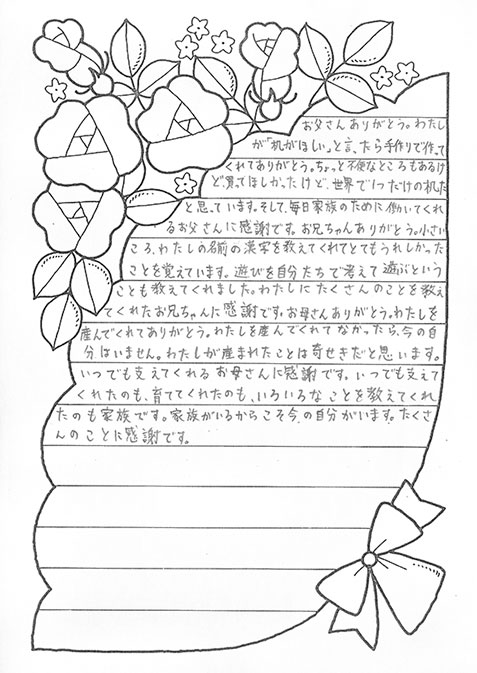 お父さんありがとう。わたし
が「机がほしい」と言ったら手作りで作って
くれてありがとう。ちょっと不便なところもあるけ
ど、買てほしかったけど、世界で1つだけの机だ
と思っています。そして、毎日家族のために働いてくれ
るお父さんに感謝です。お兄ちゃんありがとう。小さい
ころ、わたしの名前の漢字を教えてくれてとてもうれしかった
ことを覚えています。遊びを自分たちで考えて遊ぶという
ことも教えてくれました。わたしにたくさんのことを教え
てくれたお兄ちゃんに感謝です。お母さんありがとう。わたしを
産んでくれてありがとう。わたしを産んでくれてなかったら、今の自
分はいません。わたしが産まれたことは奇せきだと思います。
いつでも支えてくれるお母さんに感謝です。いつでも支えて
くれたのも、育ててくれたのも、いろいろなことを教えてくれ
たのも家族です。家族がいるからこそ今の自分がいます。たくさ
んのことに感謝です。